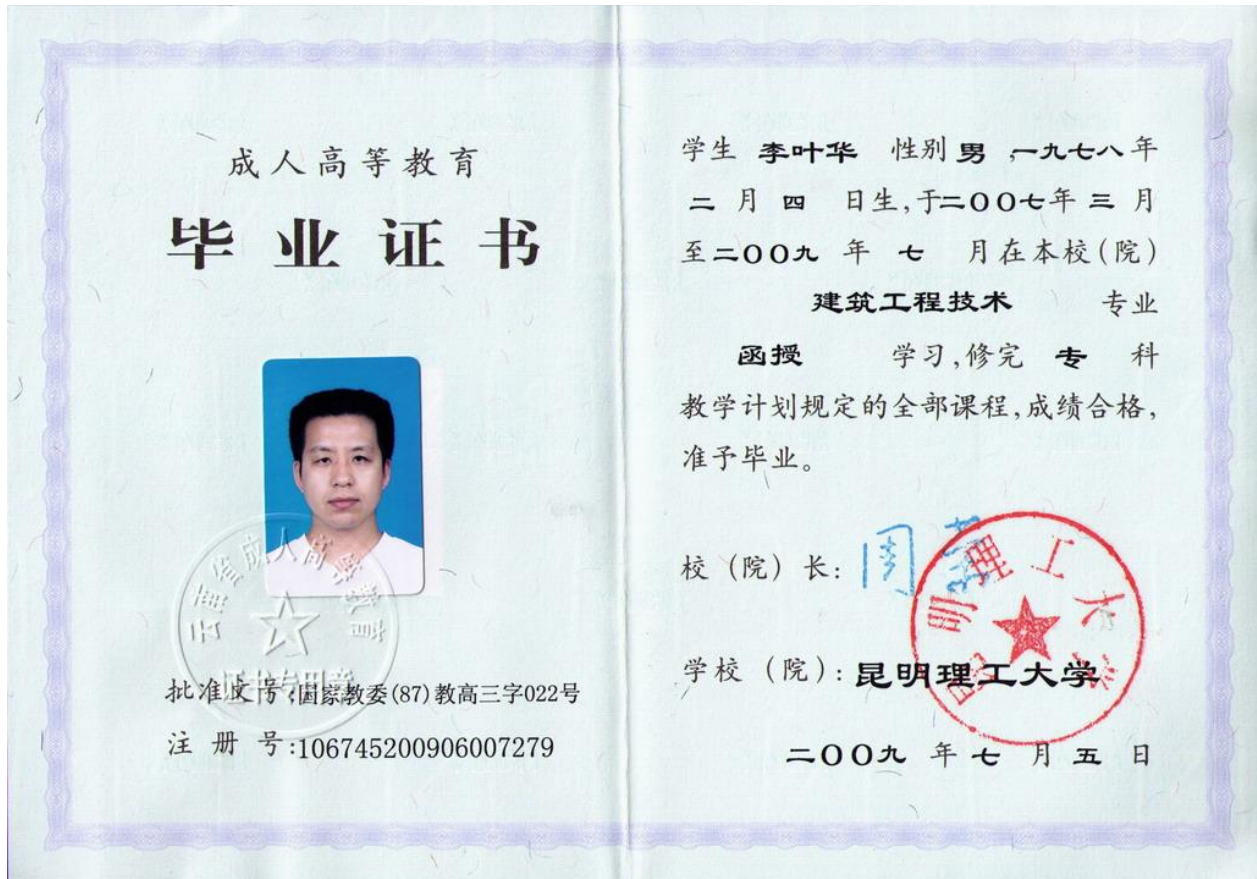 成人高等教育
毕业证书
云南省成人高等教育
证书专用章
批准文号:国家教委(87)教高三字022号
注册号:106745200906007279
学生 李叶华 性别 男 ,一九七八年
二 月 四 日生,于二〇〇七年 三 月
至二〇〇九 年 七 月在本校(院)
建筑工程技术 专业
函授 学习,修完 专 科
教学计划规定的全部课程,成绩合格,
准予毕业。
校(院)长: 周
昆明理工大学
学校(院):昆明理工大学
二〇〇九 年 七 月 五 日